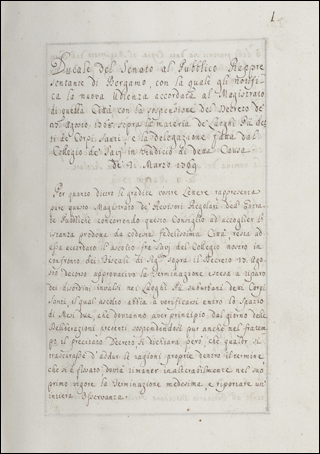 1.
Ducale del Senato al Pubblico Rappre
sentante di Bergamo, con la quale gli notifi
ca la nuova Udienza accordata al Magistrato
di quella Città con la sospensione del Decreto de'
13. Agosto, sopra la materia de' Luoghi Pii det
ti de' Corpi Santi, e la delegazione fatta dal
Collegio de' Savj in Giudici di detta Causa.
De' 21 Marzo
Per quanto dicro le gradite vostre Lettere rappresenta
pure questo Magistrato de' Revisori Regolatori dell' Entra
te Pubbliche concorrendo questo Consiglio ad accoglier l'
istanza prodotta da codesta fedelissima Città, resta ad
essa accordato l'ascolto fra Savj del Collegio nostro in
confronto dei Fiscali di Sig.ria sopra il Decreto 13. Ago
sto decorso approvativo la Terminazione estesa a riparo
dei disordini invalsi nei Luoghi Pii suburbani detti Corpi
Santi, il qual ascolto abbia a verificarsi entro lo spazio
di Mesi due, che dovranno aver principio dal giorno delle
Deliberazioni presenti sospendendosi pur anche nel frattem
po il precitato Decreto, si dichiara però, che qualor si
trascurasse d'addur le ragioni proprie dentro il termine,
che si è fissato dovrà rimaner inalterabilmente nel suo
primo vigore la Terminazione medesima e riportare un'
intiera Osservanza.